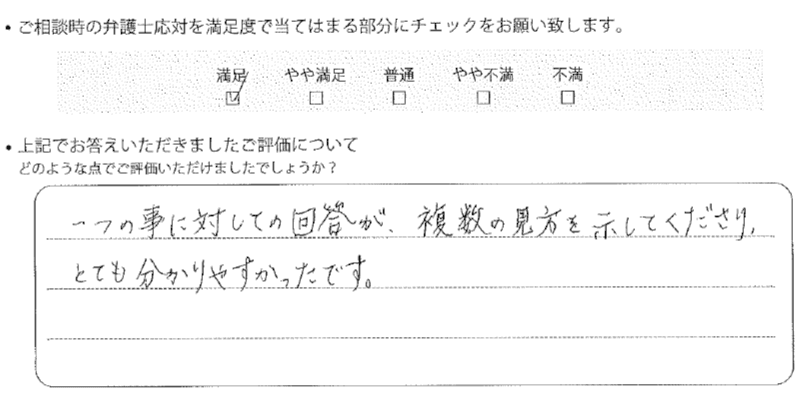 ・ご相談時の弁護士応対を満足度で当てはまる部分にチェックをお願い致します。
満足 やや満足 普通 やや不満 不満
☑ □ □ □ □
・上記でお答えいただきましたご評価について
どのような点でご評価いただけましたでしょうか？
一つの事に対しての回答が、複数の見方を示してくださり、
とても分かりやすかったです。